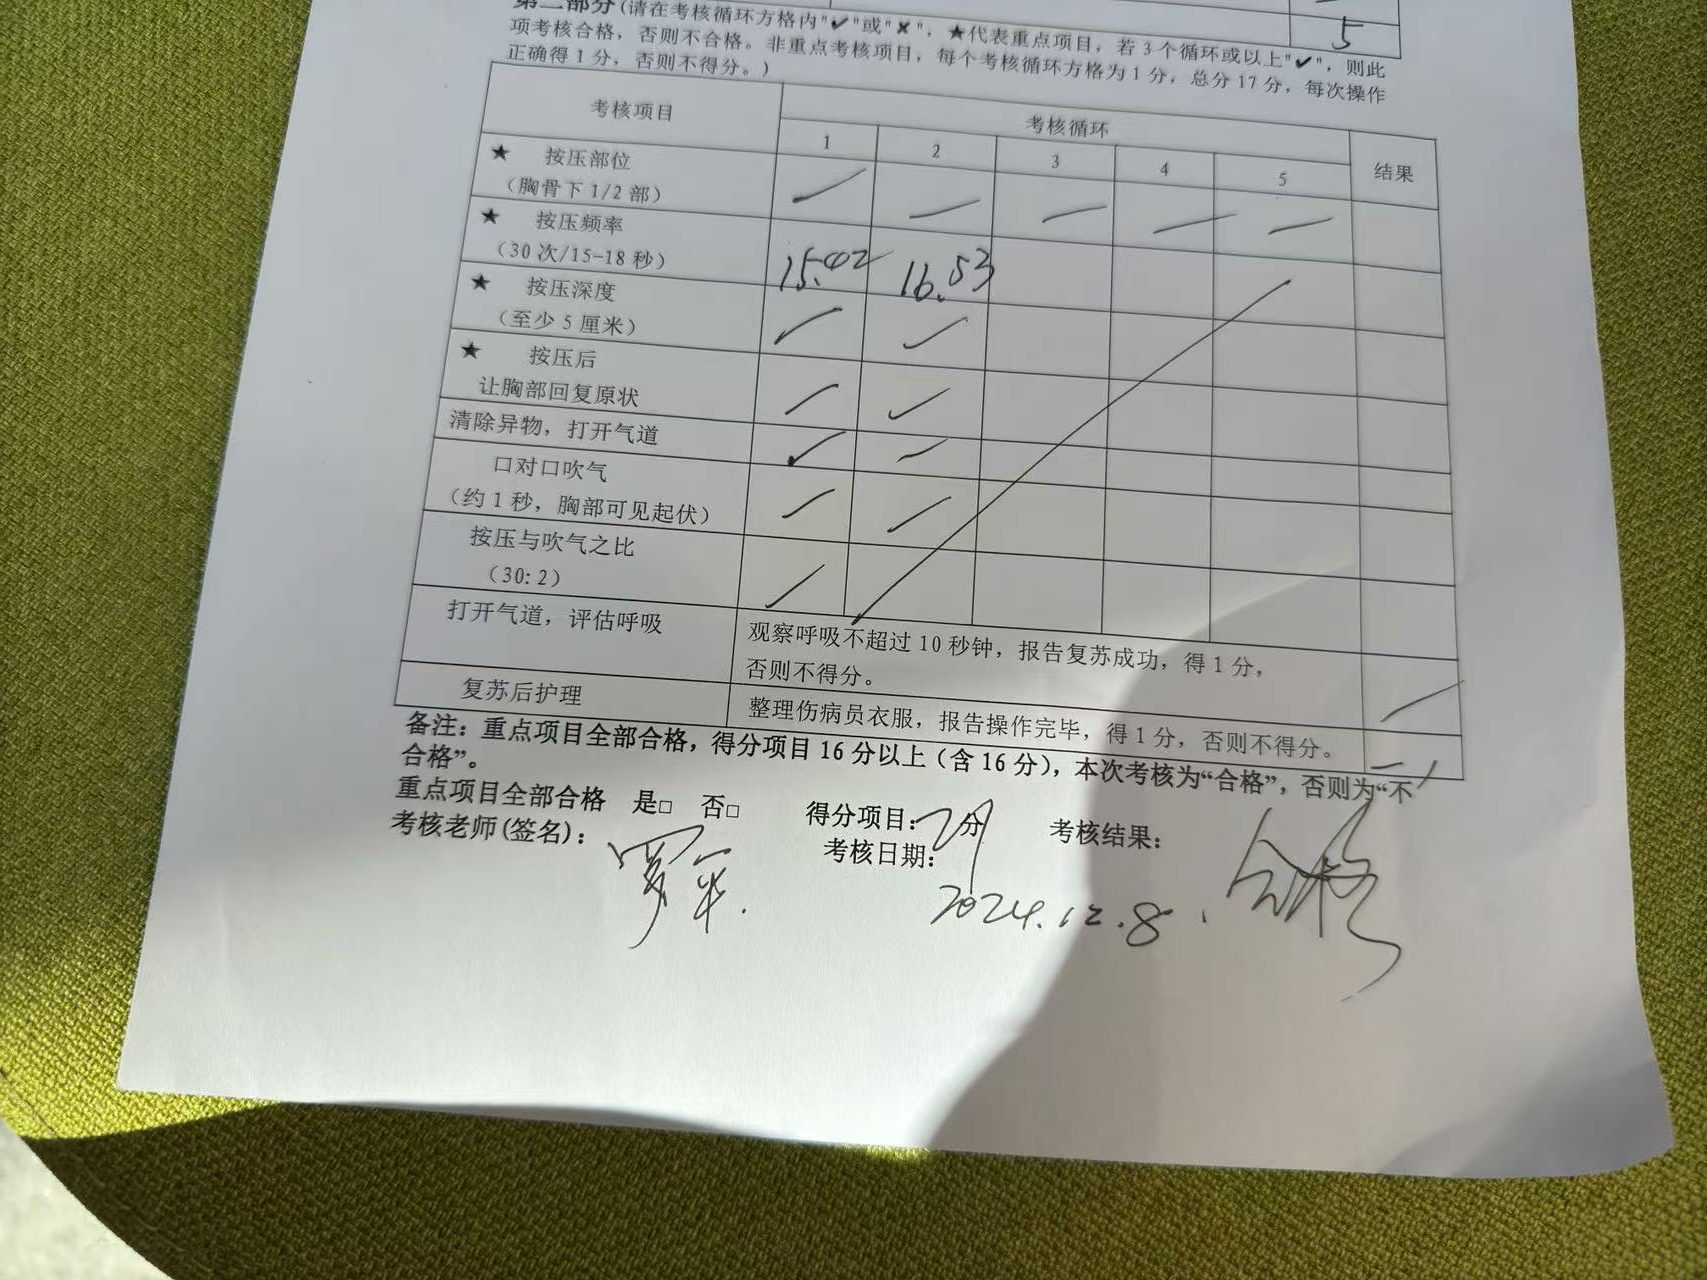 5
第二部分(请在考核循环方格内"✔"或"✘"，★代表重点项目，若3个循环或以上"✔"，则此
项考核合格，否则不合格。非重点考核项目，每个考核循环方格为1分，总分17分，每次操作
正确得1分，否则不得分。)
考核项目 考核循环 结果
1 2 3 4 5
★ 按压部位
（胸骨下1/2部）
★ 按压频率
（30次/15-18秒） 15.02 16.53
★ 按压深度
（至少5厘米）
★ 按压后
让胸部回复原状
清除异物，打开气道
口对口吹气
（约1秒，胸部可见起伏）
按压与吹气之比
（30:2）
打开气道，评估呼吸 观察呼吸不超过10秒钟，报告复苏成功，得1分，
否则不得分。
复苏后护理 整理伤病员衣服，报告操作完毕，得1分，否则不得分。
备注：重点项目全部合格，得分项目16分以上（含16分），本次考核为“合格”，否则为“不
合格”。
重点项目全部合格 是□ 否□ 得分项目： 分 考核结果： 合格
考核老师(签名)： 考核日期： 2024.12.8